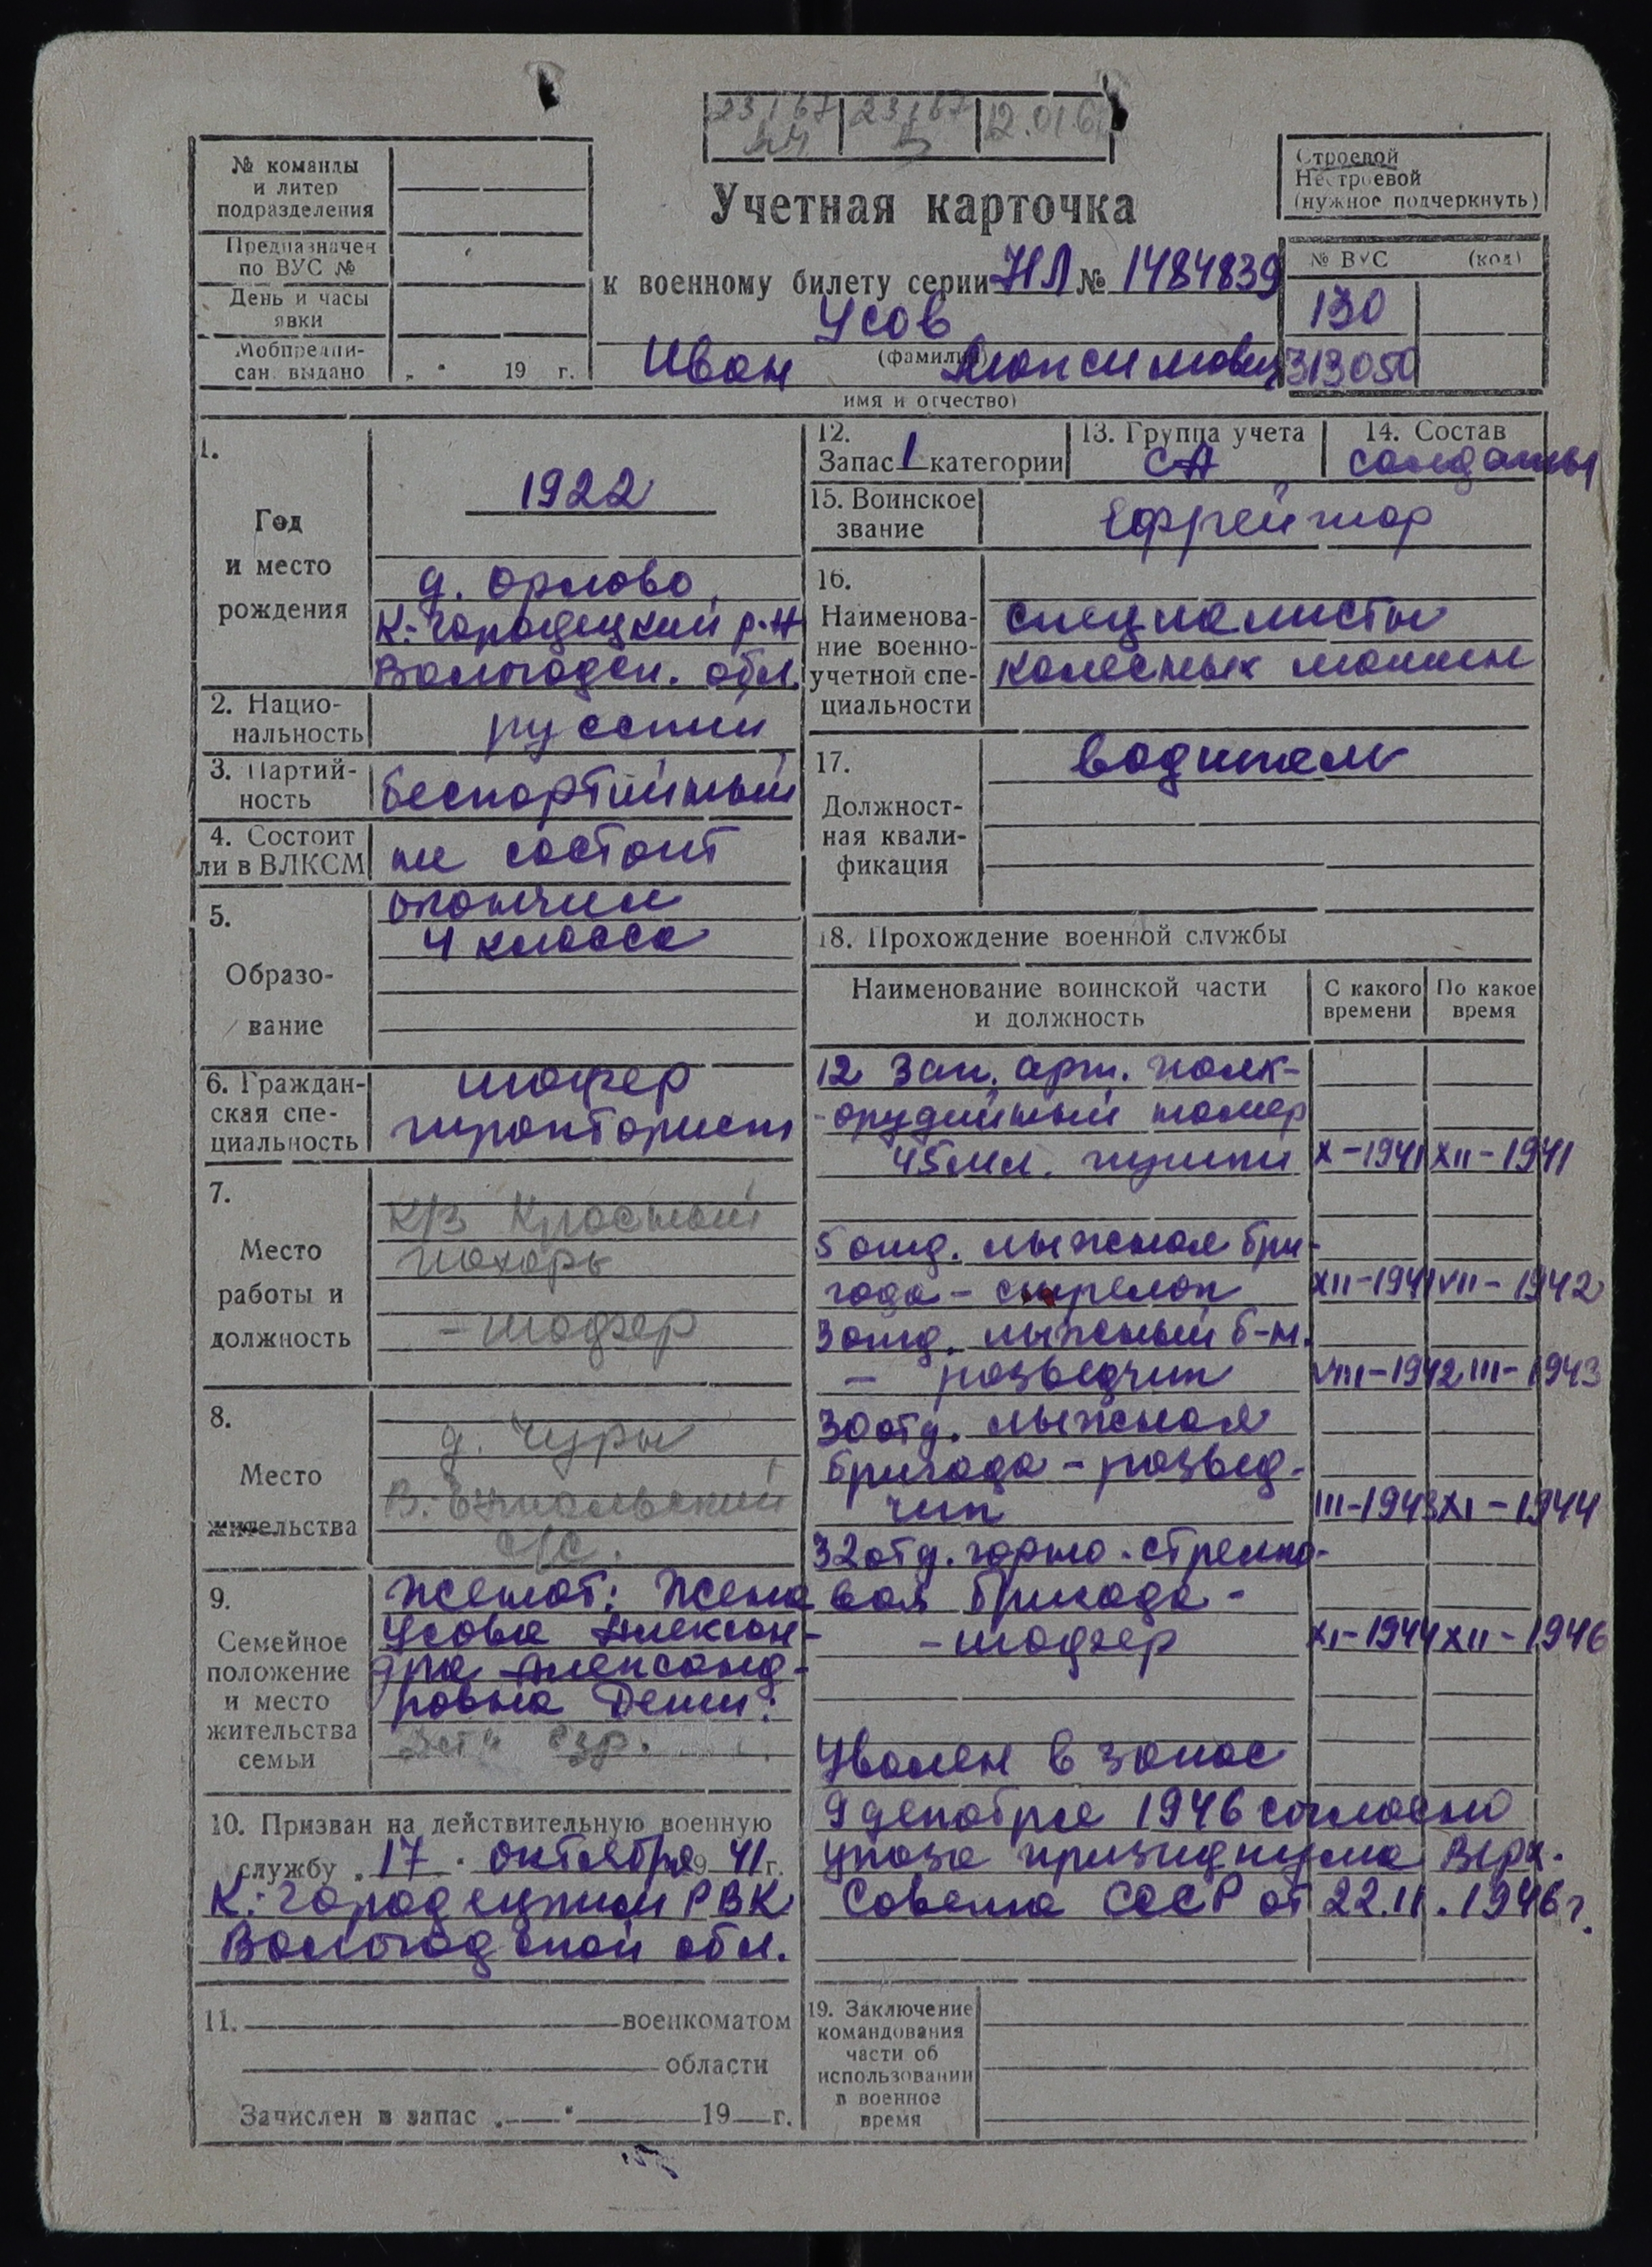 23/67 23/67 12.01.6
№ команды
и литер
подразделения
Предназначен
по ВУС №
День и часы
явки
Мобпредпи-
сан. выдано „ “ 19 г.
Учетная карточка
к военному билету серии НЛ № 1484839
Усов
(фамилия)
Иван Максимович
имя и отчество)
Строевой
Нестроевой
(нужное подчеркнуть)
№ ВУС (код)
130
313050
1.
Год
и место
рождения
1922
д. Орлово,
К-Городецкий р-н
Вологодск. обл.
2. Нацио-
нальность
русский
3. Партий-
ность
беспартийный
4. Состоит
ли в ВЛКСМ
не состоит
5.
Образо-
вание
окончил
4 класса
6. Граждан-
ская спе-
циальность
шофер
тракторист
7.
Место
работы и
должность
К/з Красный
пахарь
- шофер
8.
Место
жительства
д. Чуры
В.-Ентальский
с/с.
9.
Семейное
положение
и место
жительства
семьи
Женат: Жена
Усова Алексан-
дра Александ-
ровна Дети:
Дети взр.
10. Призван на действительную военную
службу „17“ октября 1941 г.
К-Городецким РВК
Вологодской обл.
11. военкоматом
области
Зачислен в запас „ “ 19 г.
12.
Запас 1 категории
13. Группа учета
СА
14. Состав
солдаты
15. Воинское
звание
Ефрейтор
16.
Наименова-
ние военно-
учетной спе-
циальности
специалисты
колесных машин
17.
Должност-
ная квали-
фикация
водитель
18. Прохождение военной службы
Наименование воинской части
и должность
С какого
времени
По какое
время
12 зап. арт. полк-
-орудийный номер
45мм. пушки X-1941 XII-1941
5 отд. лыжная бри-
гада - стрелок XII-1941 VII-1942
3 отд. лыжный б-н.
- разведчик VIII-1942 III-1943
30 отд. лыжная
бригада - развед-
чик III-1943 XI-1944
32 отд. горно-стрелко-
вая бригада -
- шофер XI-1944 XII-1946
Уволен в запас
9 декабря 1946 согласно
указа призидиума Верх.
Совета СССР от 22.11.1946 г.
19. Заключение
командования
части об
использовании
в военное
время